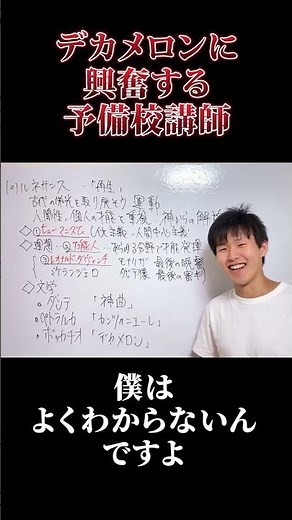 デカメロンに
興奮する
予備校講師
(2)ルネサンス ー「再生」
古代の栄光を取り戻そう 運動
人間性、個人の才能を重視 神からの解放
◇①ヒューマニズム 人文主義・人間中心主義
◇理想…②万能人…あらゆる分野で才能発揮
③レオナルド=ダ=ヴィンチ モナリザ 最後の晩餐
ミケランジェロ ダビデ像 最後の審判
◇文学
・ダンテ 「神曲」
・ペトラルカ 「カンツォニエーレ」
・ボッカチオ 「デカメロン」
僕は
よくわからないん
ですよ